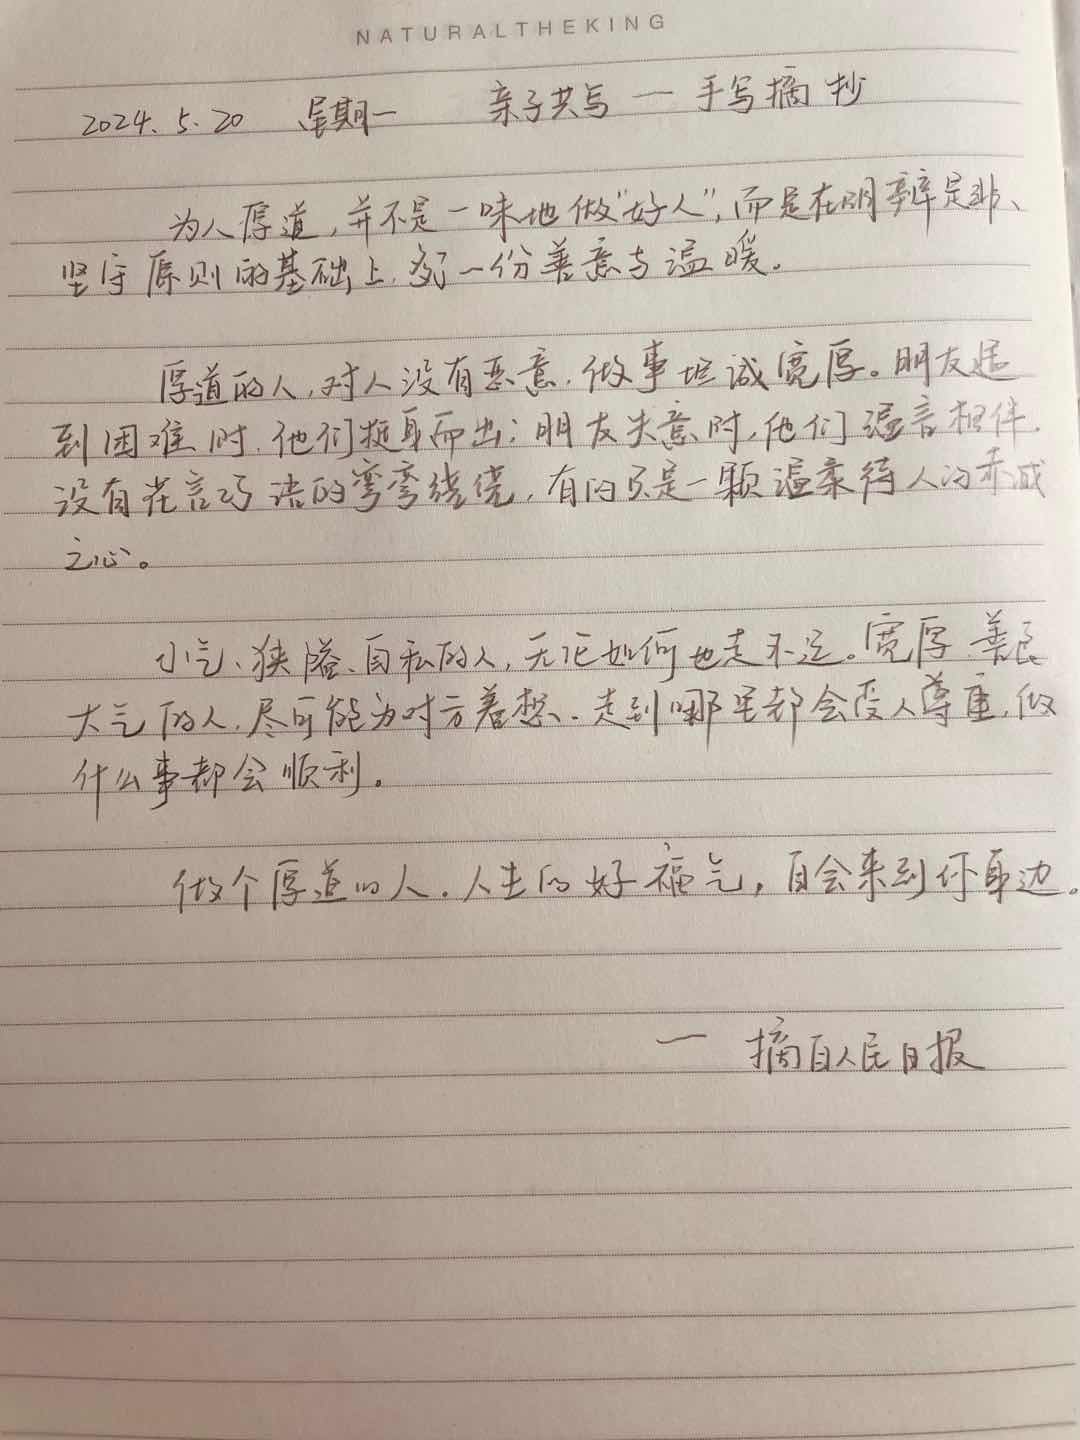 NATURALTHEKING
2024.5.20 星期一 亲子共写一手写摘抄
为人厚道,并不是一味地做"好人",而是在明辨是非、
坚守原则的基础上,多一份善意与温暖。
厚道的人,对人没有恶意,做事坦诚宽厚。朋友遇
到困难时,他们挺身而出;朋友失意时,他们温言相伴.
没有花言巧语的弯弯绕绕,有的只是一颗温柔待人的赤诚
之心。
小气、狭隘、自私的人,无论如何也走不远。宽厚善良
大气的人,尽可能为对方着想.走到哪里都会受人尊重,做
什么事都会顺利。
做个厚道的人.人生的好福气,自会来到你身边。
一 摘自人民日报